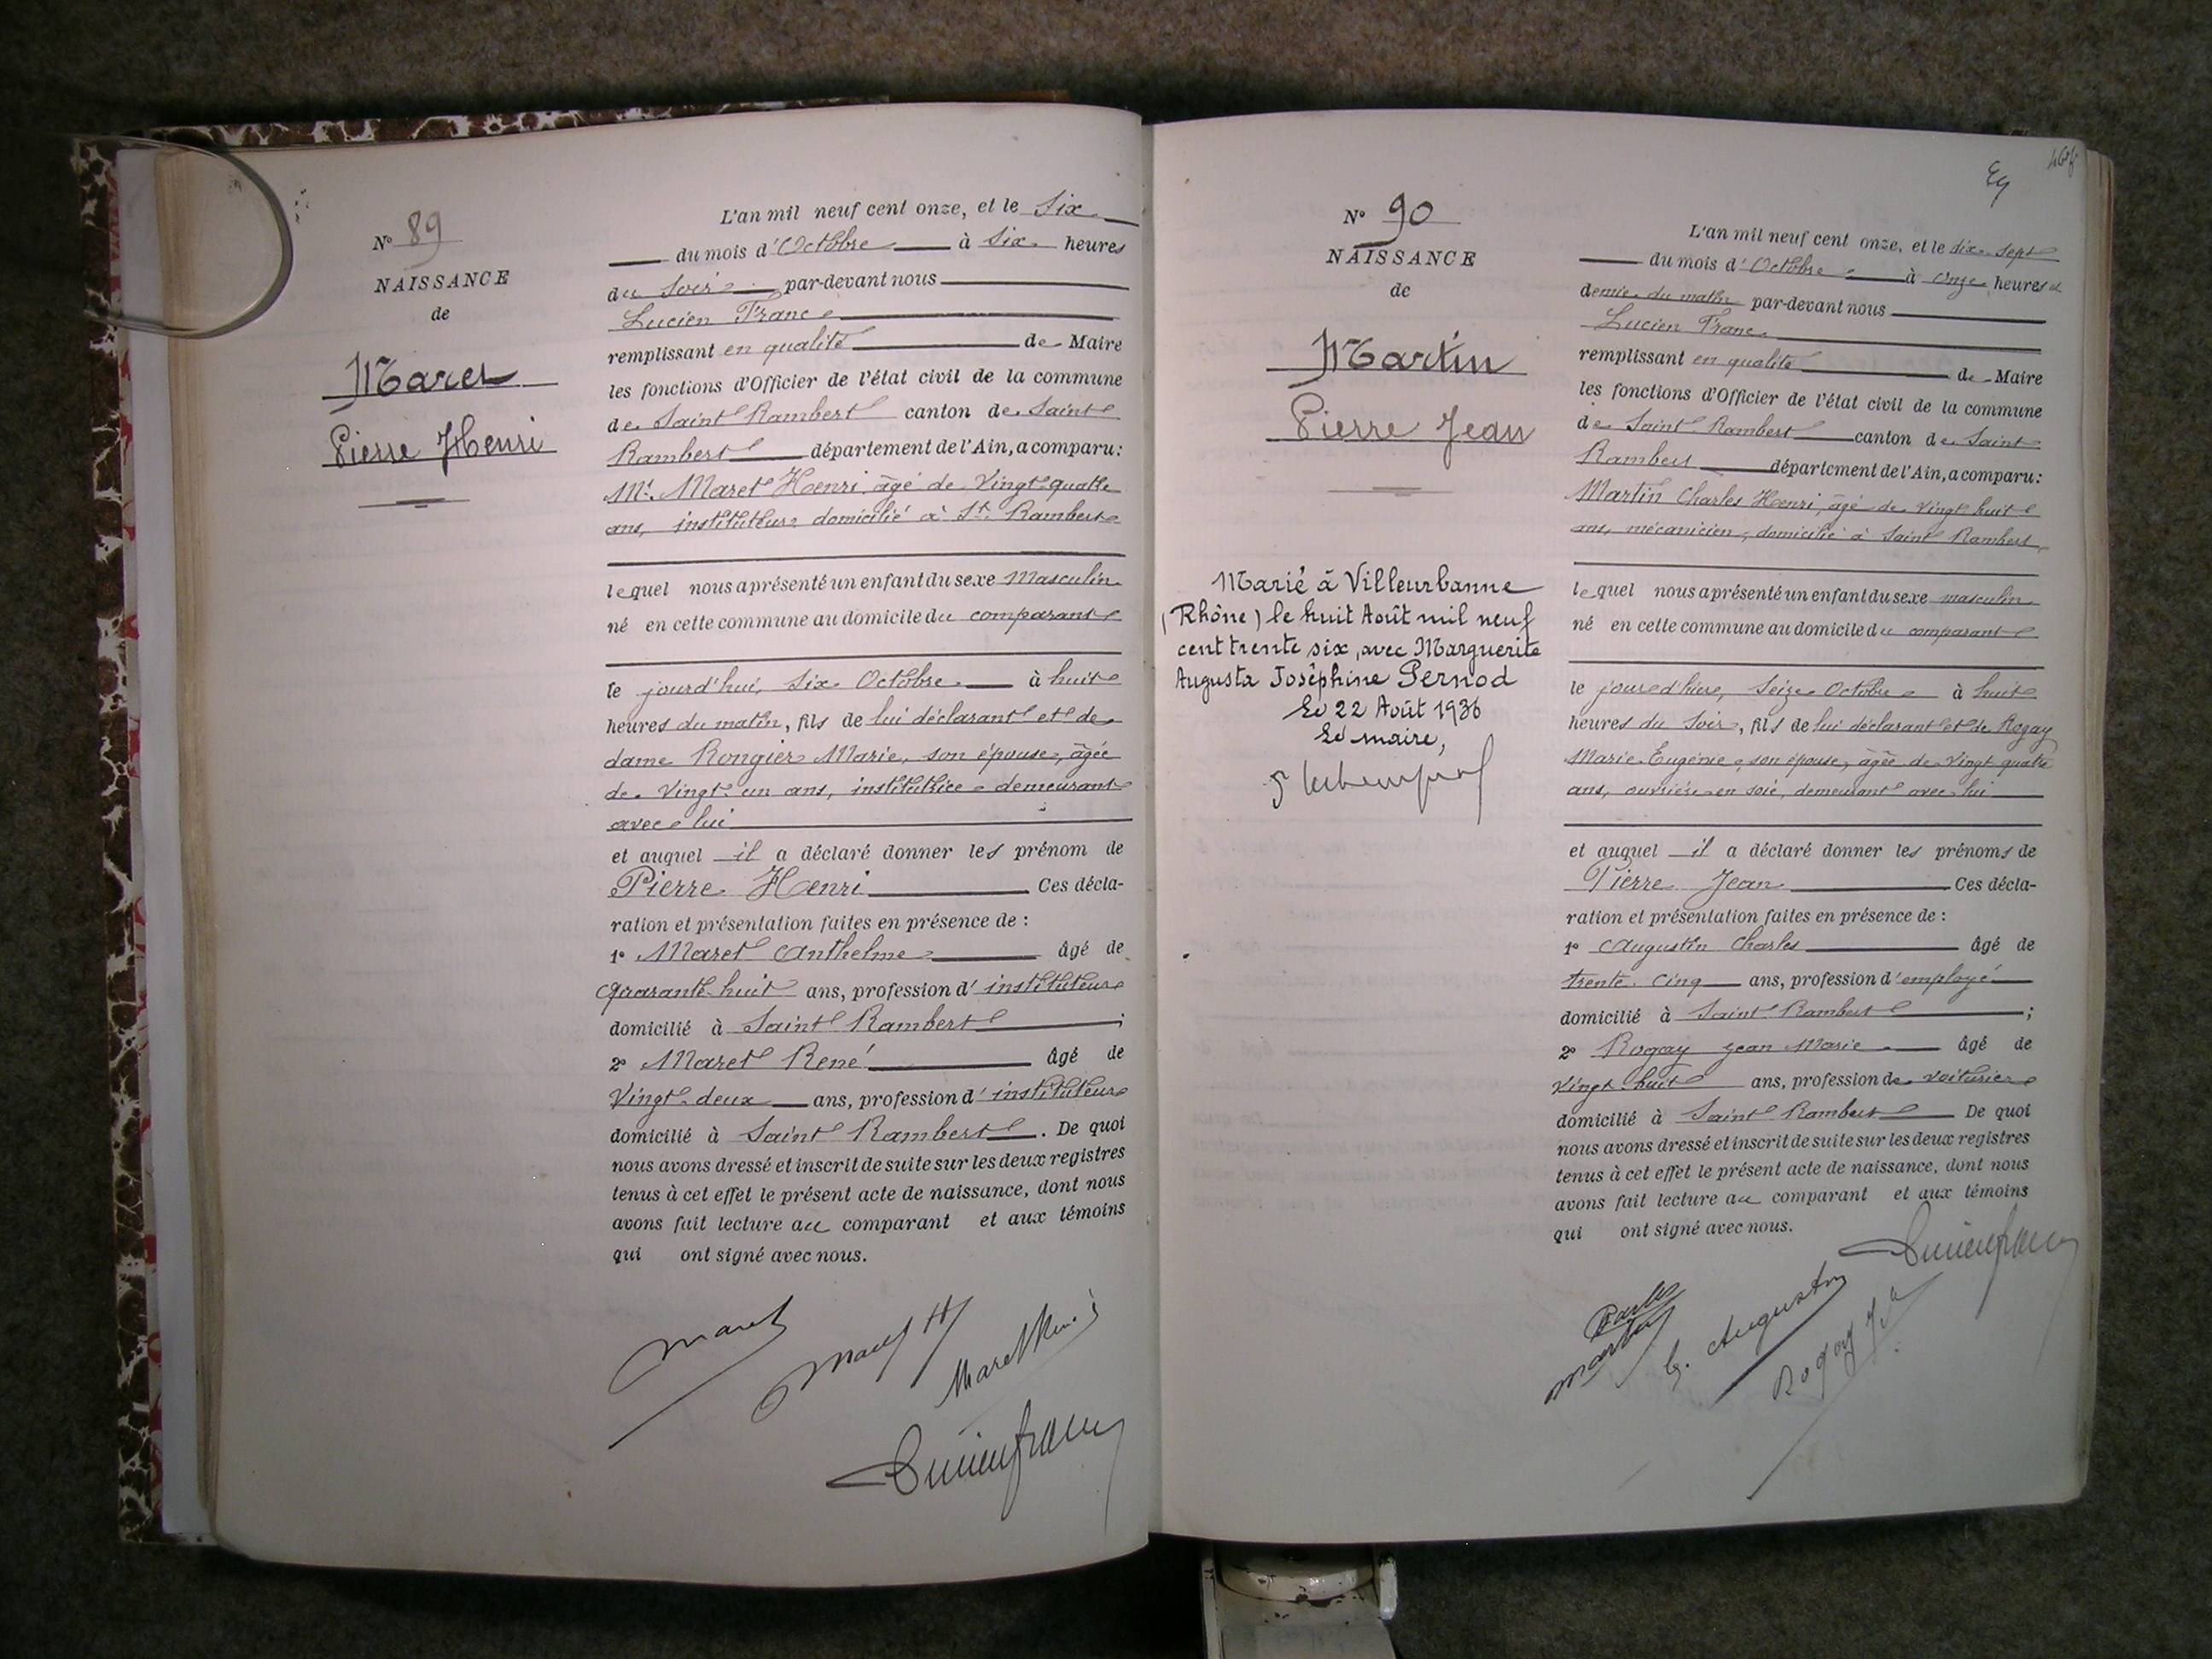 N° 89
NAISSANCE
de
Maret
Pierre Henri
L'an mil neuf cent onze, et le Six
du mois d'Octobre à Six heures
du Soir par-devant nous
Lucien Franc
remplissant en qualité de Maire
les fonctions d'Officier de l'état civil de la commune
de Saint Rambert canton de Saint
Rambert département de l'Ain, a comparu:
Mr. Maret Henri, âgé de Vingt-quatre
ans, instituteur domicilié à St. Rambert
lequel nous a présenté un enfant du sexe Masculin
né en cette commune au domicile du comparant
le jourd'hui, Six Octobre à huit
heures du matin, fils de lui déclarant et de
dame Rongier Marie, son épouse, âgée
de Vingt un ans, institutrice demeurant
avec lui
et auquel il a déclaré donner les prénom de
Pierre Henri Ces décla-
ration et présentation faites en présence de :
1° Maret Anthelme âgé de
Quarante-huit ans, profession d'instituteur
domicilié à Saint Rambert ;
2° Maret René âgé de
Vingt-deux ans, profession d'instituteur
domicilié à Saint Rambert. De quoi
nous avons dressé et inscrit de suite sur les deux registres
tenus à cet effet le présent acte de naissance, dont nous
avons fait lecture au comparant et aux témoins
qui ont signé avec nous.
Maret
Maret H
Maret René
Lucien Franc
N° 90
NAISSANCE
de
Martin
Pierre Jean
Marié à Villeurbanne
(Rhône) le huit Août mil neuf
cent trente six, avec Marguerite
Augusta Joséphine Pernod
Le 22 Août 1936
Le maire,
L'an mil neuf cent onze, et le dix-sept
du mois d'Octobre à onze heures et
demie du matin par-devant nous
Lucien Franc
remplissant en qualité de Maire
les fonctions d'Officier de l'état civil de la commune
de Saint Rambert canton de Saint
Rambert département de l'Ain, a comparu:
Martin Charles Henri, âgé de Vingt huit
ans, mécanicien, domicilié à Saint Rambert
lequel nous a présenté un enfant du sexe masculin
né en cette commune au domicile du comparant
le jour d'hier, Seize Octobre à huit
heures du Soir, fils de lui déclarant et de Rogay
Marie Eugénie, son épouse, âgée de Vingt quatre
ans, ouvrière en soie, demeurant avec lui
et auquel il a déclaré donner les prénoms de
Pierre Jean Ces décla-
ration et présentation faites en présence de :
1° Augustin Charles âgé de
trente-cinq ans, profession d'employé
domicilié à Saint Rambert ;
2° Rogay Jean Marie âgé de
Vingt huit ans, profession de voiturier
domicilié à Saint Rambert De quoi
nous avons dressé et inscrit de suite sur les deux registres
tenus à cet effet le présent acte de naissance, dont nous
avons fait lecture au comparant et aux témoins
qui ont signé avec nous.
Lucien Franc
Martin
C. Augustin
Rogay